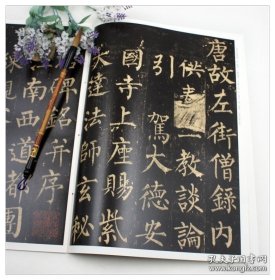 唐故左街僧錄內
供奉三教談論
引 駕大德安
國寺上座賜紫
大達法師玄秘
碑銘并序
南西道都團